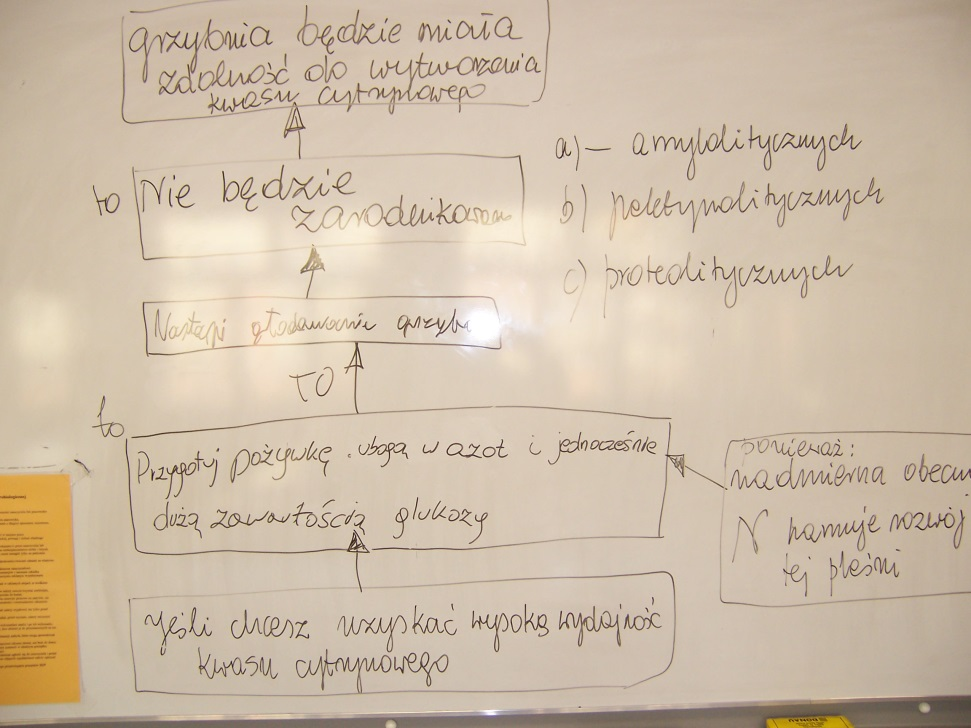 grzybnia będzie miała
zdolność do wytworzenia
kwasu cytrynowego
to Nie będzie
zarodnikowan
Nastąpi głodowanie grzyba
TO
to
Przygotuj pożywkę ubogą w azot i jednocześnie
dużą zawartością glukozy
Jeśli chcesz uzyskać wysoką wydajność
kwasu cytrynowego
a) – amylolitycznych
b) pektynolitycznych
c) proteolitycznych
ponieważ:
nadmierna obecn
N hamuje rozwój
tej pleśni